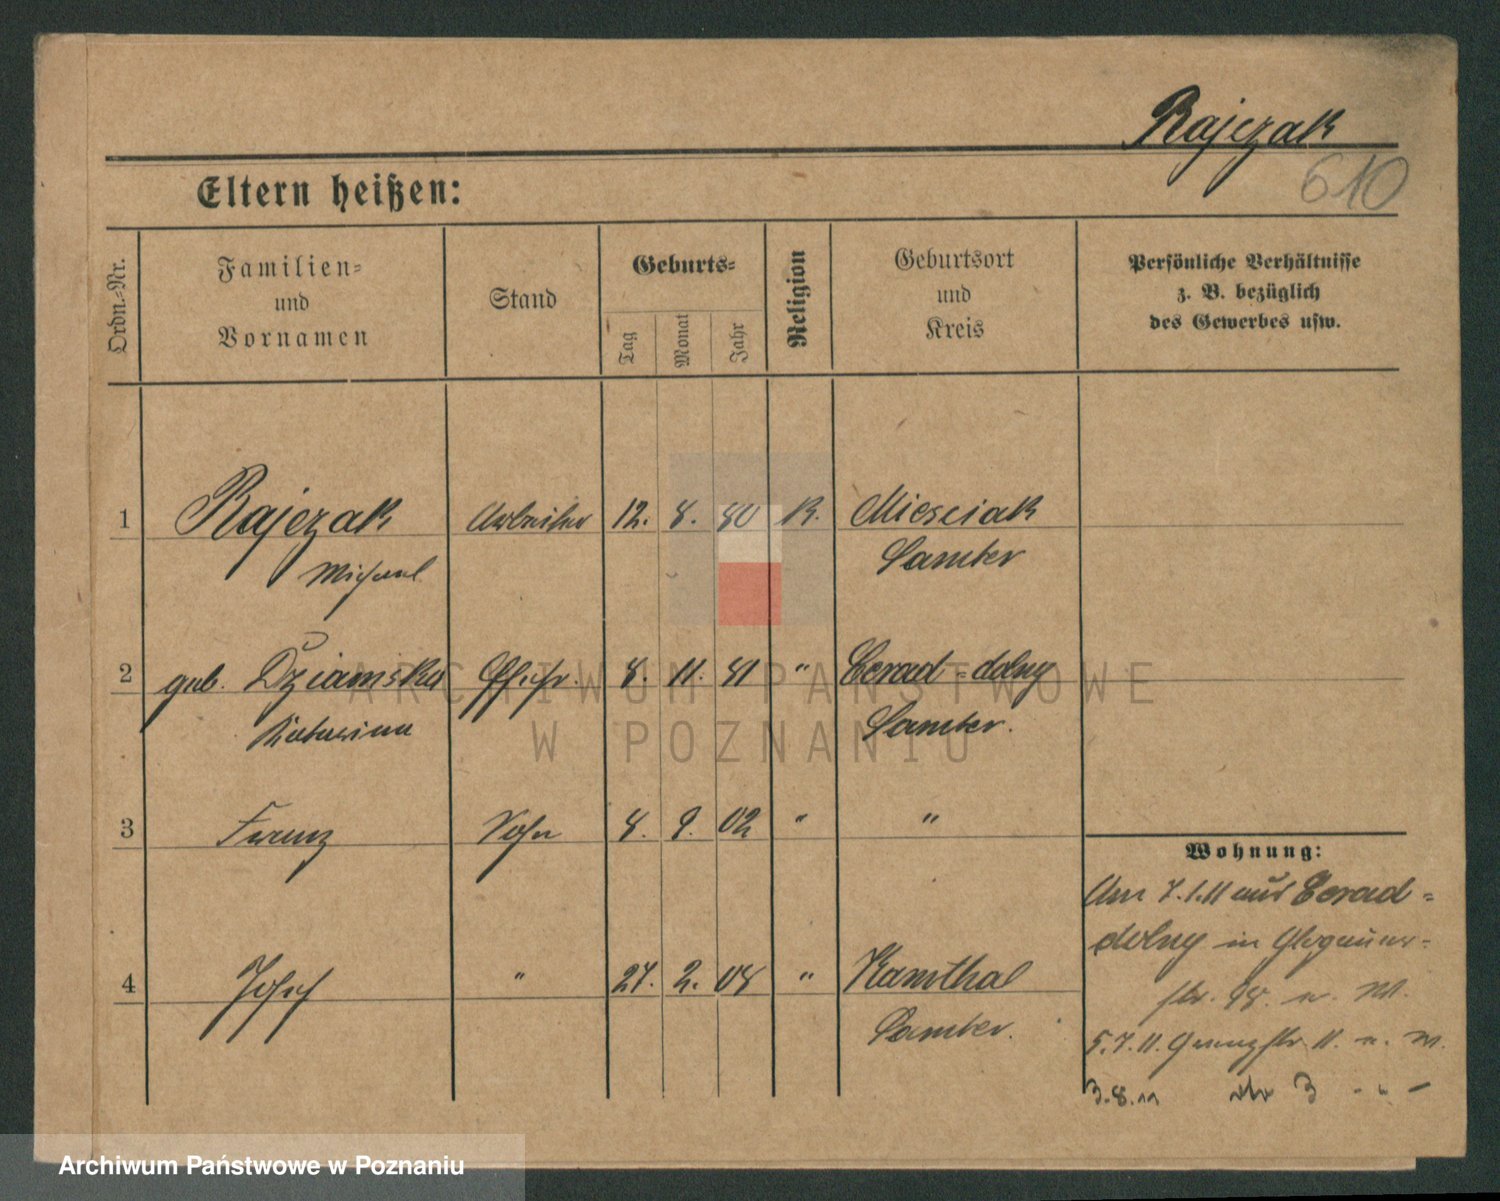 Rajczak
610
Eltern heißen:
Ordn.-Nr.
Familien-
und
Vornamen
Stand
Geburts-
Tag
Monat
Jahr
Religion
Geburtsort
und
Kreis
Persönliche Verhältnisse
z. B. bezüglich
des Gewerbes usw.
1 Rajczak Arbeiter 12. 8. 80 K. Miesciak
Michael Samter
2 geb. Dziamska Ehefr. 8. 11. 81 " Cerad-dolny
Katarina Samter.
3 Franz Sohn 8. 9. 02 " "
Wohnung:
Am 7.1.11 aus Cerad-
dolny in Glogauer-
str. 98. n. W.
4 Josef " 27. 2. 08 " Kamthal
Samter.
5.7.11. Grenzstr. 11. n. W.
3.8.11 3 - " -
ARCHIWUM PAŃSTWOWE
W POZNANIU
Archiwum Państwowe w Poznaniu